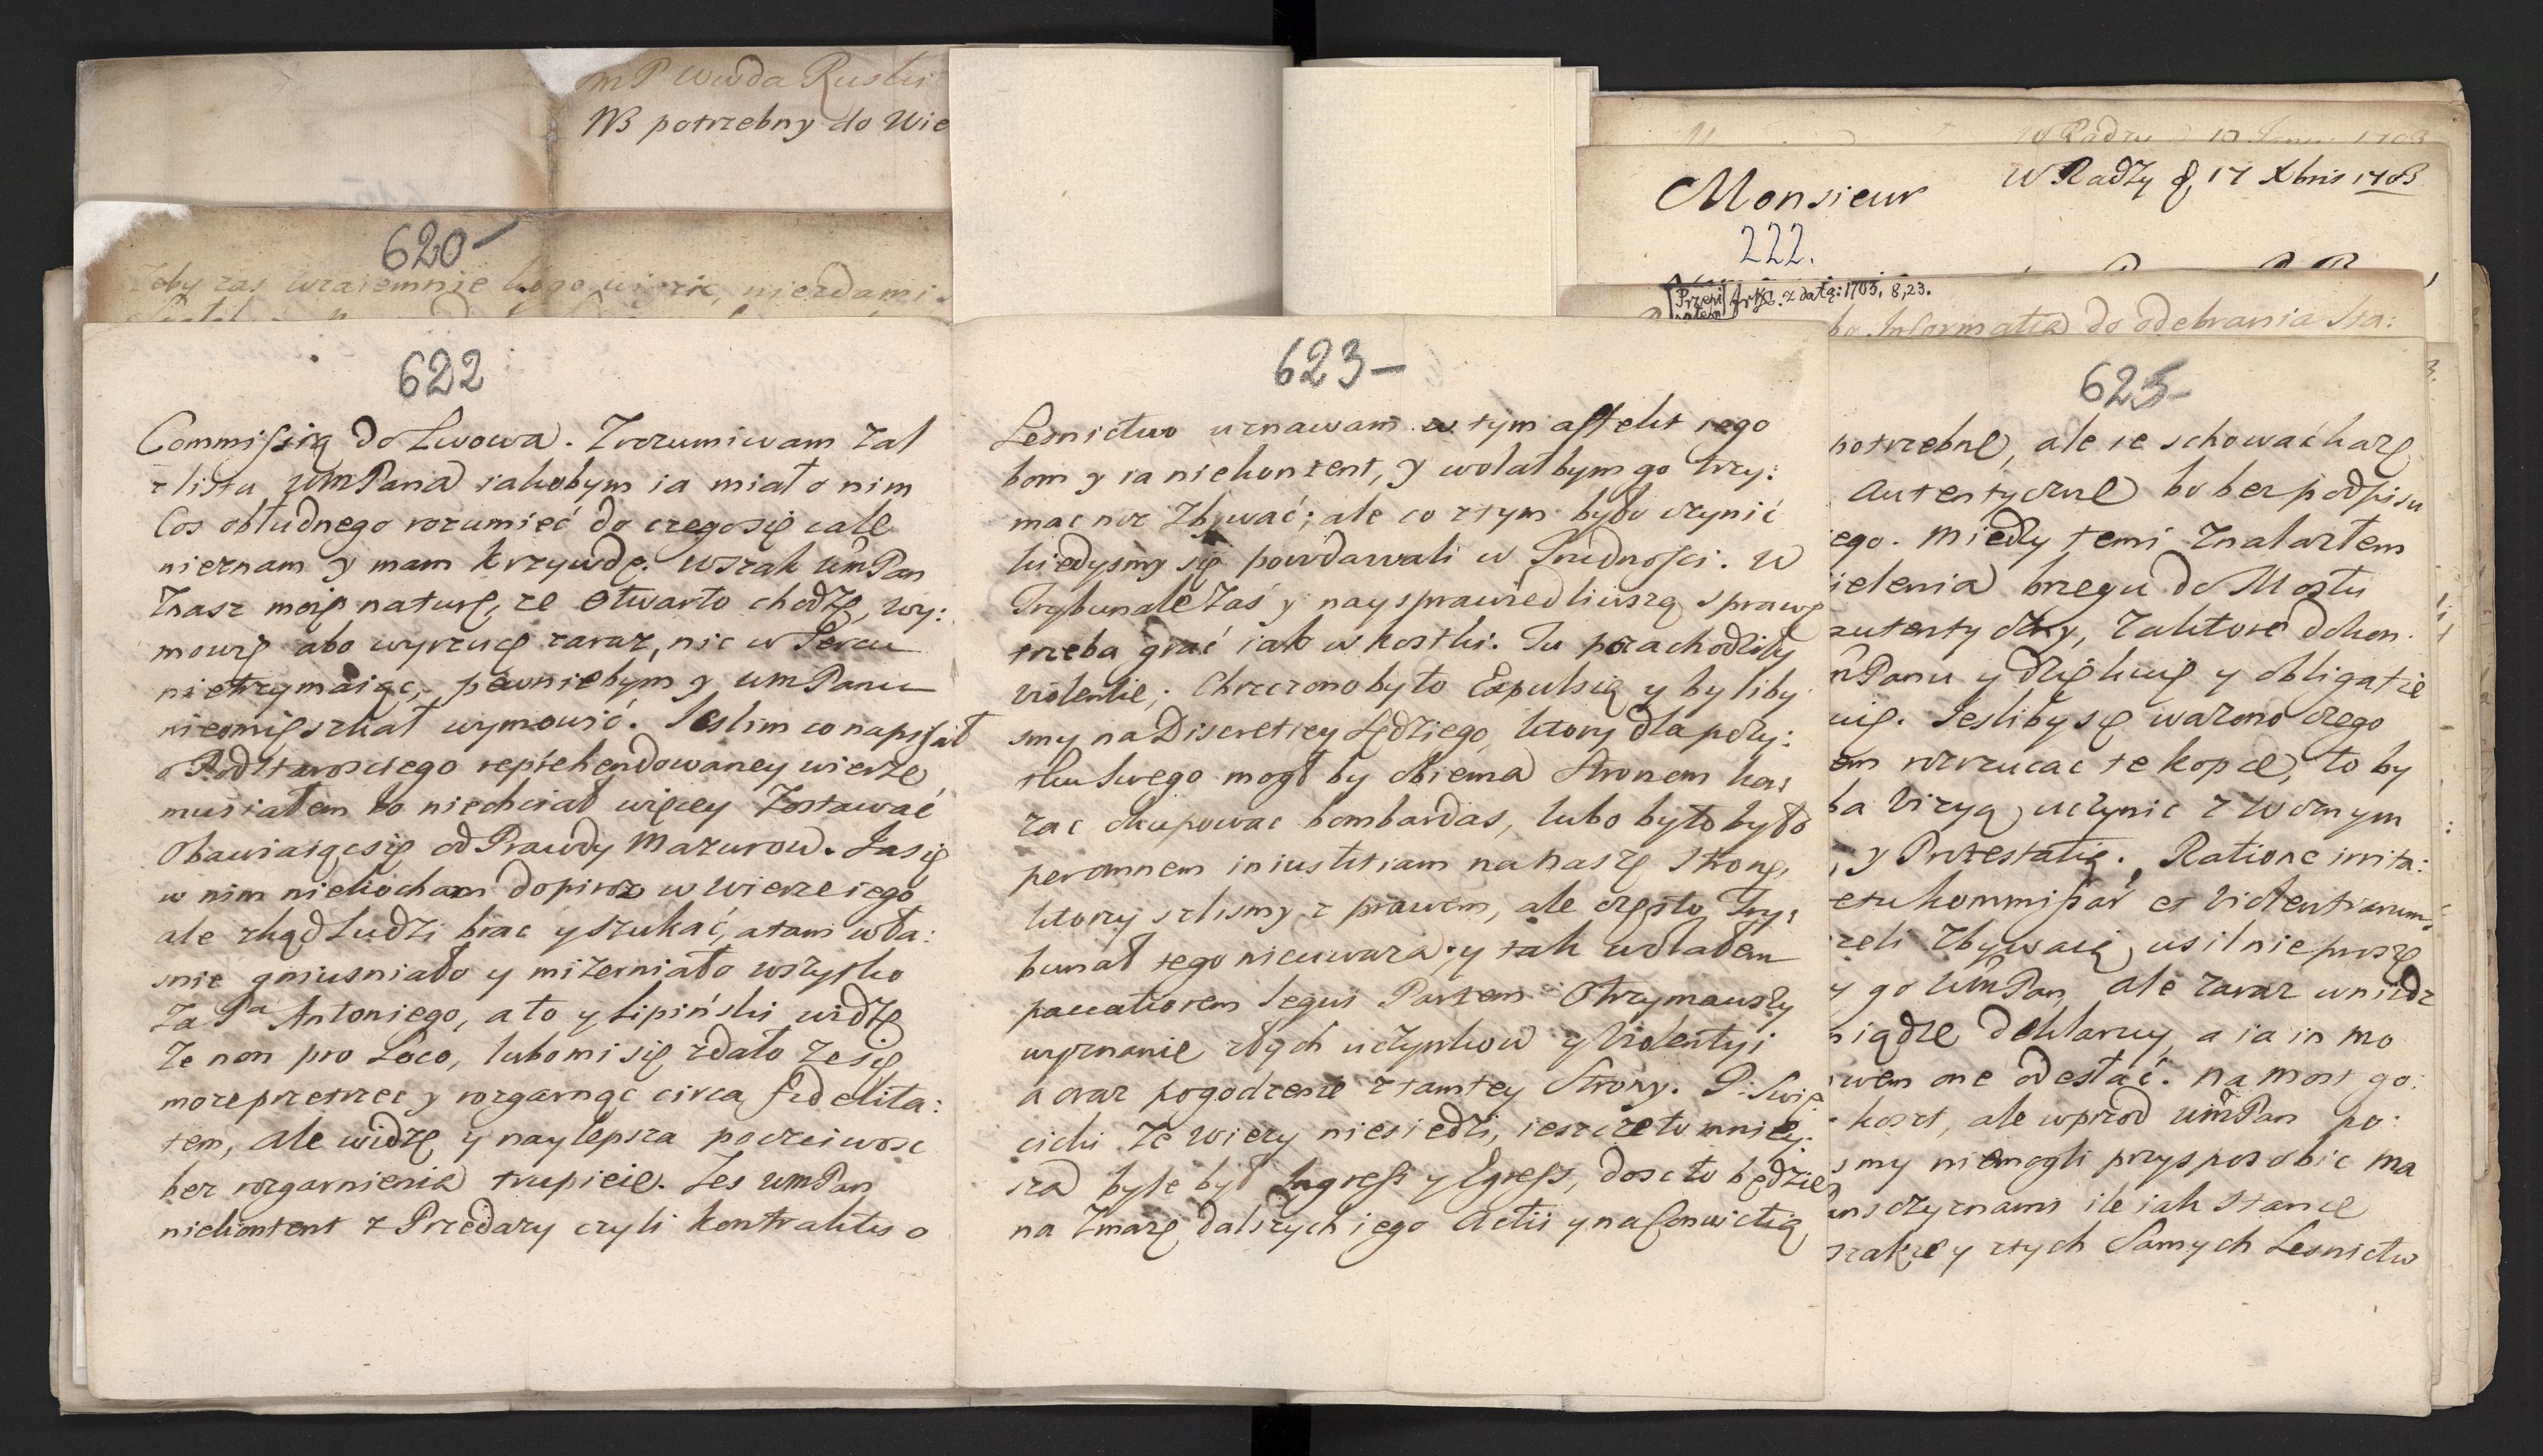 mP Wwda Ruski
NB potrzebny do Wie
620-
żeby zas wzaiemnie kogo winic, niezdami
622
Commissią do Lwowa. Zrozumiwam zal
z listu WMPana iakobym ia miał o nim
Cos obłudnego rozumieć do czegosię cale
nieznam y mam krzywdę. Wszak WmPan
Znasz moię naturę, ze otwarto chodzę, wy:
mowię abo wyrzucę zaraz, nic w Sercu
nietrzymaiąc, pewniebym y WmPanu
niemięszkał wymowić. Jeslim co napisał
o Podstarosciego reprehendowaney wierze
musiałem bo niechciał więcey Zostawać
Obawiaiącsię od Prawdy Mazurow. Jasię
w nim niekocham dopiroz w Wierze iego
ale zkąd Ludzi brac y szukać, a tam wła:
snie gniusniało y mizerniało wszystko
Za Pa Antoniego, a to y Lipiński widzę
Ze non pro Loco, lubomi się zdało ze się
moze przetrzec y rozgarnąc circa fidelita:
tem, ale widzę y naylepsza poczciwosc
bez rozgarnienia trupieie. Zes WmPan
niekontent z Przedazy czyli kontraktu o
623-
Lesnictwo uznawam w tym affekt iego
bom y ia niekontent, y wolałbym go trzy:
mac niz Zbywać; ale co z tym było czynić
kiedysmy się powdawali w Trudnosci. W
Trybunale Zaś y naysprawiedliwszą sprawę
trzeba grać iak w kostki. Tu zachodziły
violentie, Chrzczono było Expulsią y byliby
smy na Discretiey Sędziego, ktory dla pozy:
tku Swego mogł by obiema Stronom ka:
zac okupowac bombardas, lubo było było
per omnem iniustitiam na naszę Stronę,
ktorzy szlismy z prawem, ale często Try:
bunał tego nieuwaza; y tak wolałem
paccatiorem sequi Partem Otrzymawszy
wyznanie złych uczynkow y Violentyi
a oraz pogodzenie z tamtey Strony. P. Swię:
cicki Ze Wiezy niesiedzi, ieszcze to mniey:
sza byle był Ingress y Egress, dosc to będzie
na Zmazę dalszych iego Actii y na Convictią
Monsieur
W Radzy d, 17 Xbris 1703
222.
Przepi
sałem
Arks. z datą: 1703, 8, 23.
ba Informatia do odebrania Sta:
625-
potrzebne, ale ie schować karę
Autentyczne bo bez podpisu
iego. Miedzy temi Znalazłem
ielenia brzegu do Mostu
autentyczny, Zaktore dokon.
mPanu y dziękuię y obligatie
uię. Jesliby się wazono czego
em rozrzucac te kopce, to by
ba Vizyą uczynic z Woznym
, y Protestatię. Ratione irrita:
etu kommissar et Violentiarum
zeli Zbywaią usilnie proszę
y go WmPan, ale zaraz wniedz
niądze deklaruy, a ia in mo
wem one odesłać. Na most go:
koszt, ale wprzod WmPan po:
smy niemogli przysposobic ma
ansczyznami ile iak Stanie
szakze y ztych Samych Lesnictw